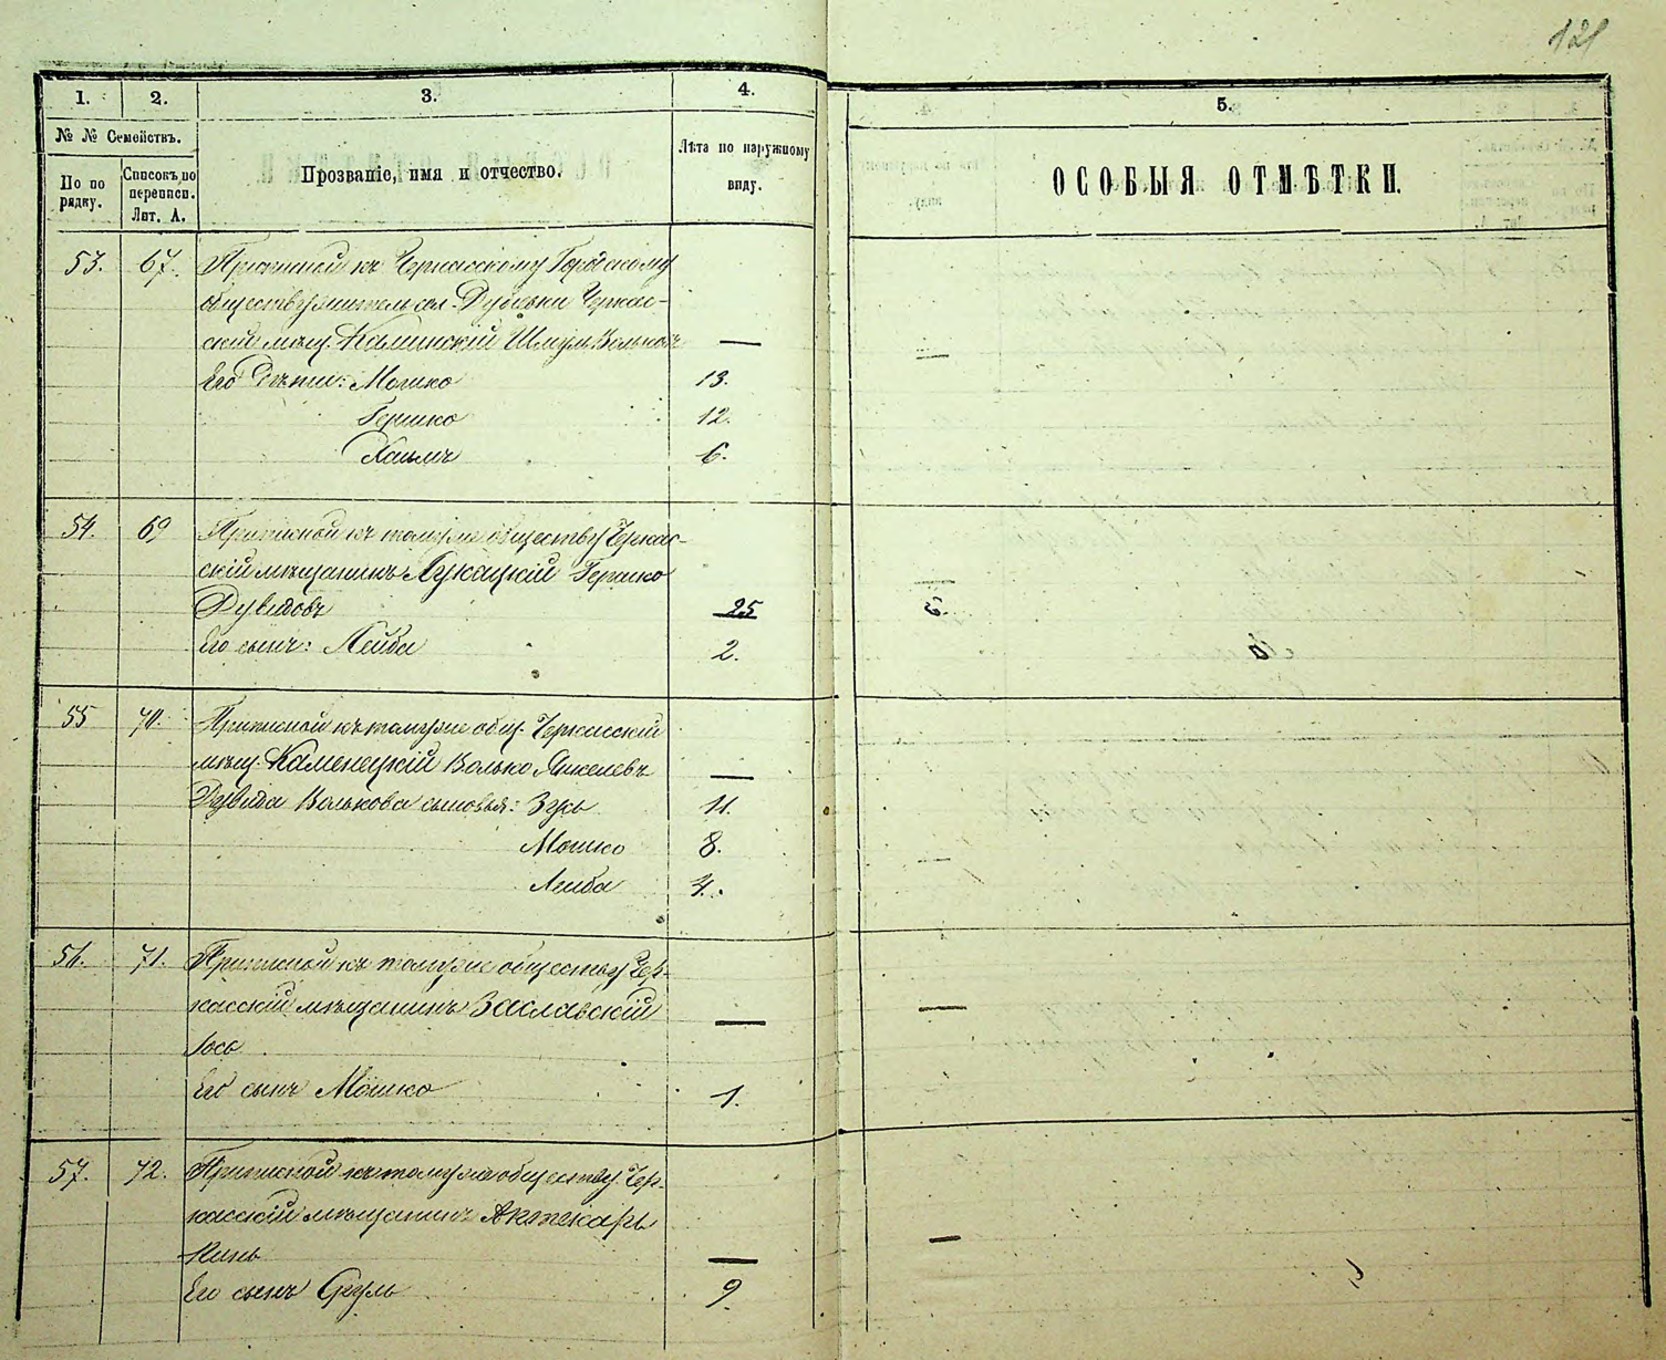 121
1. 2. 3. 4. 5.
№ № Семействъ.
По по рядку.
Списокъ по переписи. Лит. А.
Прозваніе, имя и отчество.
Лѣта по наружному виду.
ОСОБЫЯ ОТМѢТКИ.
53. 67. Приписной къ Черкасскому Городскому
обществу житель сел. Дубіевки Черкас-
скій мѣщ. Калинскій Шмуль Вольковъ —
Его дѣти: Мошко 13.
Гершко 12.
Хаимъ 6.
54. 69 Приписной къ томуже обществу Черкас-
скій мѣщанинъ Лукацкій Гершко
Дувидовъ 25
Его сынъ: Лейба 2.
55 70. Приписной къ томуже общ. Черкасскій
мѣщ. Каменецкій Волько Янкелевъ —
Дувида Волькова сыновья: Зусь 11.
Мошко 8.
Лейба 4.
56. 71. Приписной къ томуже обществу Чер-
касскій мѣщанинъ Заславскій —
Іось
Его сынъ Мошко 1.
57. 72. Приписной къ томуже обществу Чер-
касскій мѣщанинъ
—
Его сынъ Сруль 9.